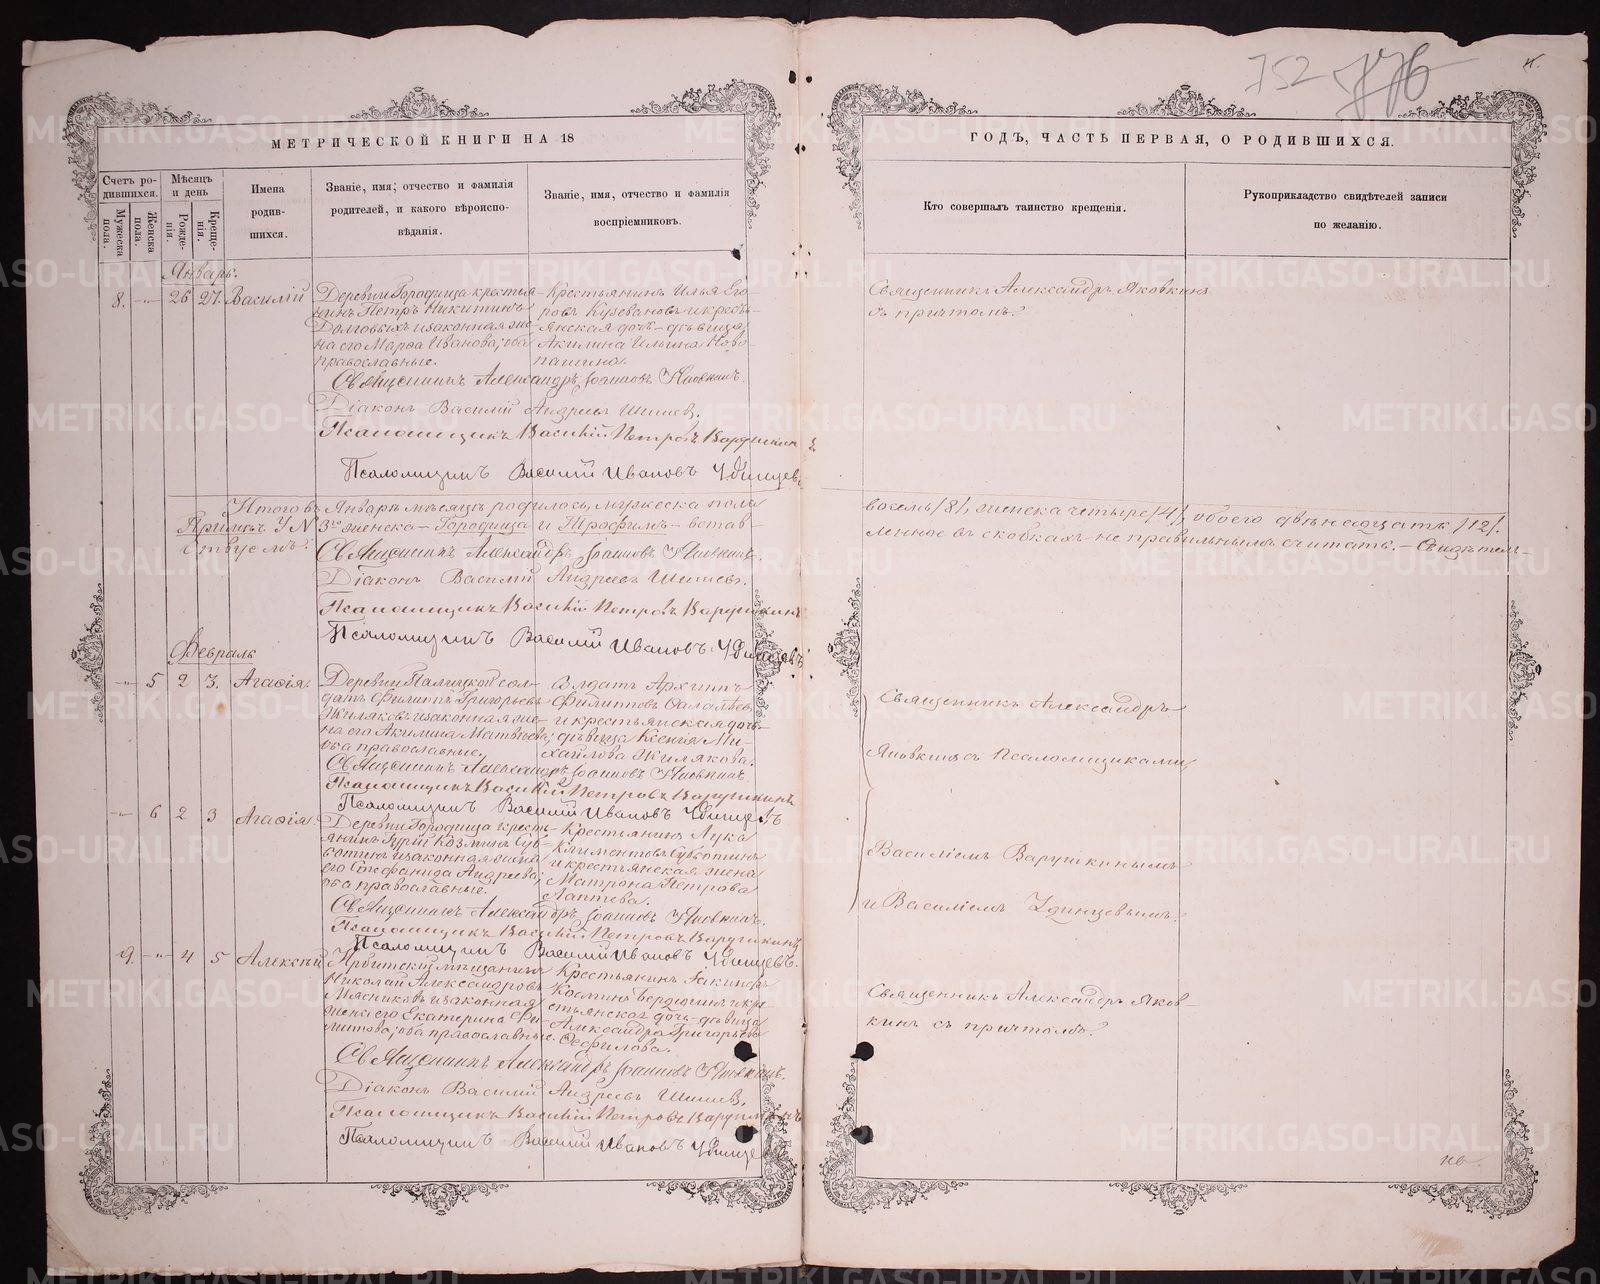 752 776
МЕТРИЧЕСКОЙ КНИГИ НА 18
ГОДЪ, ЧАСТЬ ПЕРВАЯ, О РОДИВШИХСЯ.
Счетъ ро-
дившихся.
Мужеска
пола.
Женска
пола.
Мѣсяцъ
и день
Рожде-
нія.
Креще-
нія.
Имена
родив-
шихся.
Званіе, имя, отчество и фамилія
родителей, и какого вѣроиспо-
вѣданія.
Званіе, имя, отчество и фамилія
воспріемниковъ.
Кто совершалъ таинство крещенія.
Рукоприкладство свидѣтелей записи
по желанію.
Январь.
8. -"- 26 27. Василій
Деревни Городища крестья-
нинъ Петръ Никитинъ
Долговыхъ и законная же-
на его Марѳа Иванова; оба
православные.
Крестьянинъ Илья Его-
ровъ и кресть-
янская дочь-дѣвица
Акилина Ильина Ново-
пашина.
Священникъ Александръ Яковкинъ
съ причтомъ.
Священникъ Александръ Іоанновъ Яковкинъ.
Діаконъ Василій Андреевъ Шишевъ.
Псаломщикъ Василій Петровъ Варушкинъ
Псаломщикъ Василій Ивановъ Удинцевъ
Итого въ Январѣ мѣсяцѣ родилось, мужеска пола
восемь /8/, женска четыре /4/, обоего двѣнадцать /12/.
Примѣч. У № 3го женска - Городища и Трофимъ - встав-
ленное въ скобкахъ не правильнымъ считать. - Свидѣтель-
ствуемъ:
Священникъ Александръ Іоанновъ Яковкинъ.
Діаконъ Василій Андреевъ Шишевъ.
Псаломщикъ Василій Петровъ Варушкинъ
Псаломщикъ Василій Ивановъ Удинцевъ
Февраль
-"- 5 2 3. Агафія.
Деревни сол-
датъ Филиппъ Григорьевъ
Жиляковъ и законная же-
на его Акилина Матвѣева;
оба православные.
Солдатъ Архиппъ
Филипповъ
и крестьянская дочь-
дѣвица Ксенія Ми-
хайлова Жилякова.
Священникъ Александръ
Яковкинъ съ Псаломщиками,
Священникъ Александръ Іоанновъ Яковкинъ.
Псаломщикъ Василій Петровъ Варушкинъ
Псаломщикъ Василій Ивановъ Удинцевъ
-"- 6 2 3 Агафія
Деревни Городища кресть-
янинъ Гурій Козминъ Суб-
ботинъ и законная жена
его Стефанида Андреева;
оба православные.
Крестьянинъ Лука
Климентовъ Субботинъ
и крестьянская жена
Матрона Петрова
Лаптева.
Василіемъ Варушкинымъ
и Василіемъ Удинцевымъ.
Священникъ Александръ Іоанновъ Яковкинъ.
Псаломщикъ Василій Петровъ Варушкинъ
Псаломщикъ Василій Ивановъ Удинцевъ.
9. -"- 4 5 Алексѣй
Ирбитскій мѣщанинъ
Николай Александровъ
Мясниковъ и законная
жена его Екатерина Фи-
липова; оба православные.
Крестьянинъ
Косминъ Бердюгинъ и кре-
стьянская дочь-дѣвица
Александра Григорьева
Ѳефилова.
Священникъ Александръ Яков-
кинъ съ причтомъ.
Священникъ Александръ Іоанновъ Яковкинъ.
Діаконъ Василій Андреевъ Шишевъ.
Псаломщикъ Василій Петровъ Варушкинъ
Псаломщикъ Василій Ивановъ Удинцевъ
METRIKI.GASO-URAL.RU